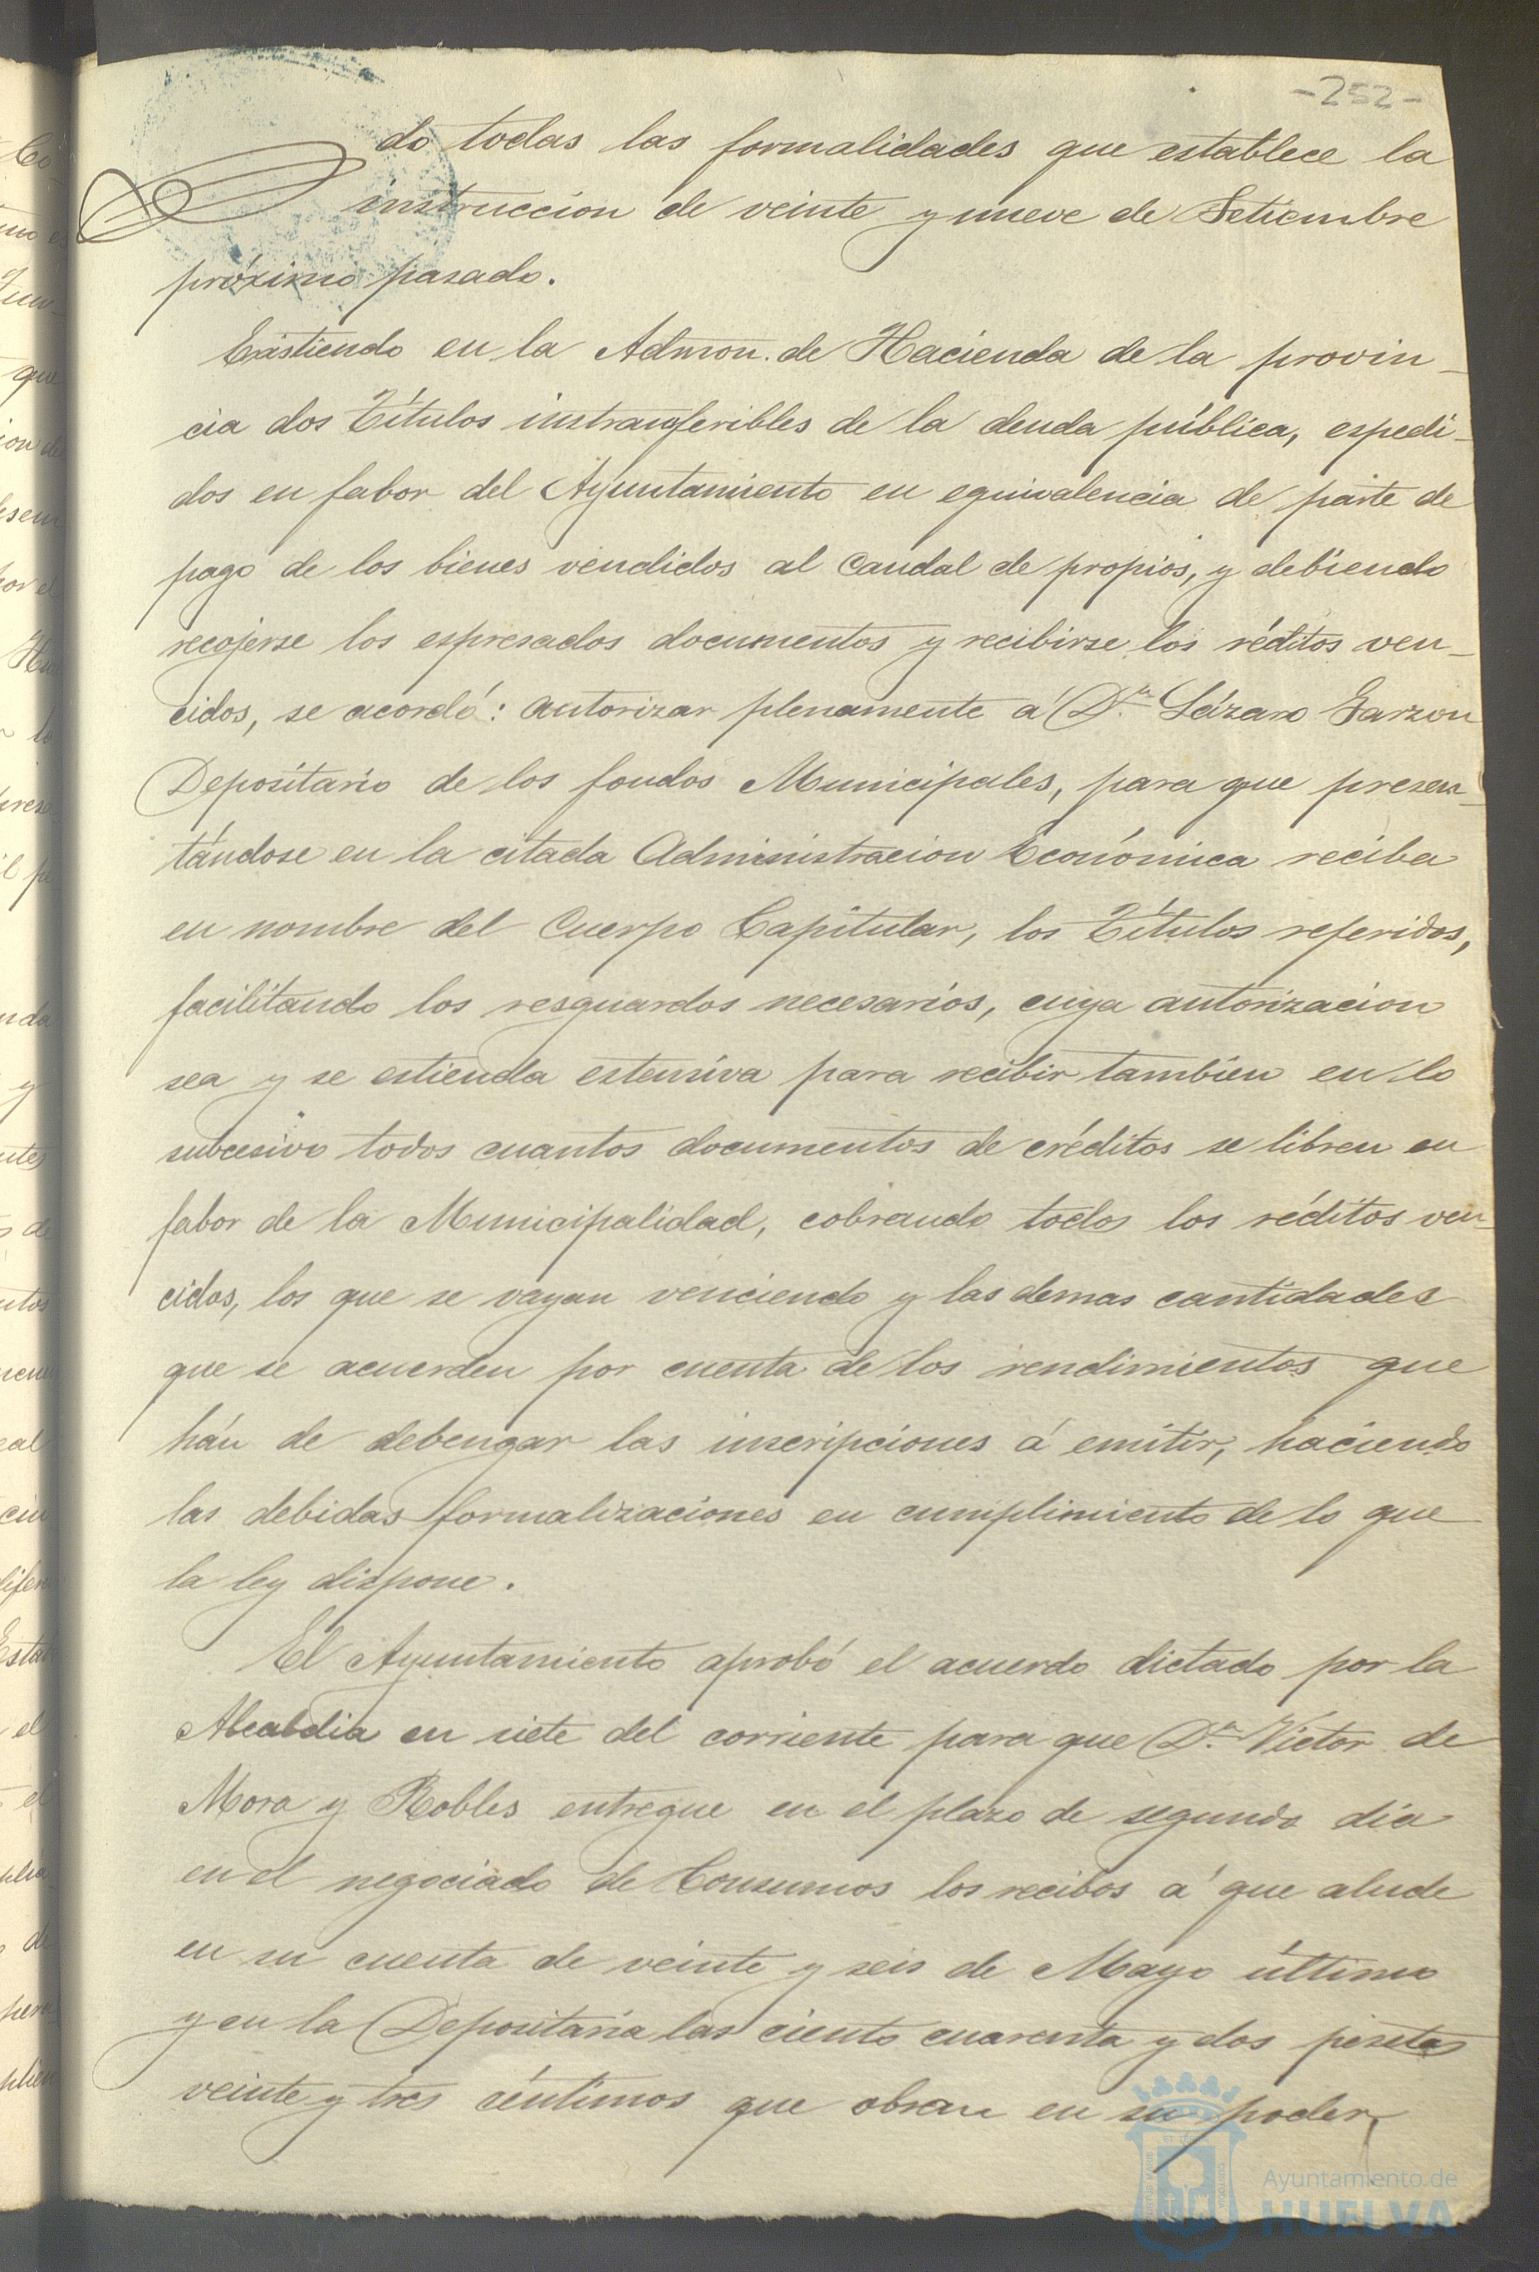 -252-
do todas las formalidades que establece la
instruccion de veinte y nueve de Setiembre
próximo pasado.
Existiendo en la Admon. de Hacienda de la provin-
cia dos Títulos instransferibles de la deuda pública, espedi-
dos en fabor del Ayuntamiento en equivalencia de parte de
pago de los bienes vendidos al caudal de propios, y debiendo
recojerse los espresados documentos y recibirse los réditos ven-
cidos, se acordó: autorizar plenamente á Dn. Lázaro Garzon
Depositario de los fondos Municipales, para que presen-
tándose en la citada Administracion Económica reciba
en nombre del Cuerpo Capitular, los Títulos referidos,
facilitando los resguardos necesarios, cuya autorizacion
sea y se estienda estensiva para recibir tambien en lo
subcesivo todos cuantos documentos de créditos se libren en
fabor de la Municipalidad, cobrando todos los réditos ven-
cidos, los que se vayan venciendo y las demas cantidades
que se acuerden por cuenta de los rendimientos que
hán de debengar las inscripciones á emitir, haciendo
las debidas formalizaciones en cumplimiento de lo que
la ley dispone.
El Ayuntamiento aprobó el acuerdo dictado por la
Alcaldia en siete del corriente para que Dn. Victor de
Mora y Robles entregue en el plazo de segundo dia
en el negociado de Consumos los recibos á que alude
en su cuenta de veinte y seis de Mayo último
y en la Depositaria las ciento cuarenta y dos pesetas
veinte y tres céntimos que obran en su poder,
Ayuntamiento de
HUELVA